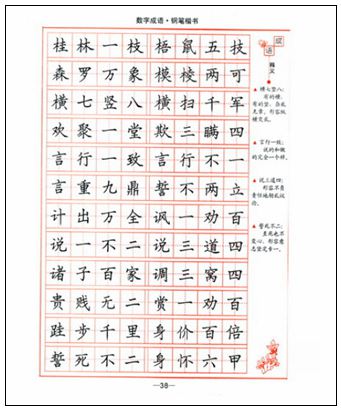 数字成语·钢笔楷书
桂林一枝梧鼠五技
森罗万象模棱两可
横七竖八横扫千军
欢聚一堂欺三瞒四
言行一致言行不一
言重九鼎誓不两立
计出万全讽一劝百
说一不二说三道四
诸子百家调三窝四
贵贱无二赏一劝百
跬步千里身价百倍
誓死不二身怀六甲
成语
释义
▲横七竖八：
有的横，
有的竖，杂乱
无章。形容纵
横交叉。
▲言行一致：
说的和做
的完全一个样。
▲说三道四：
形容不负
责任地胡乱议
论。
▲誓死不二：
至死也不
变心。形容意
志坚定专一。
—38—